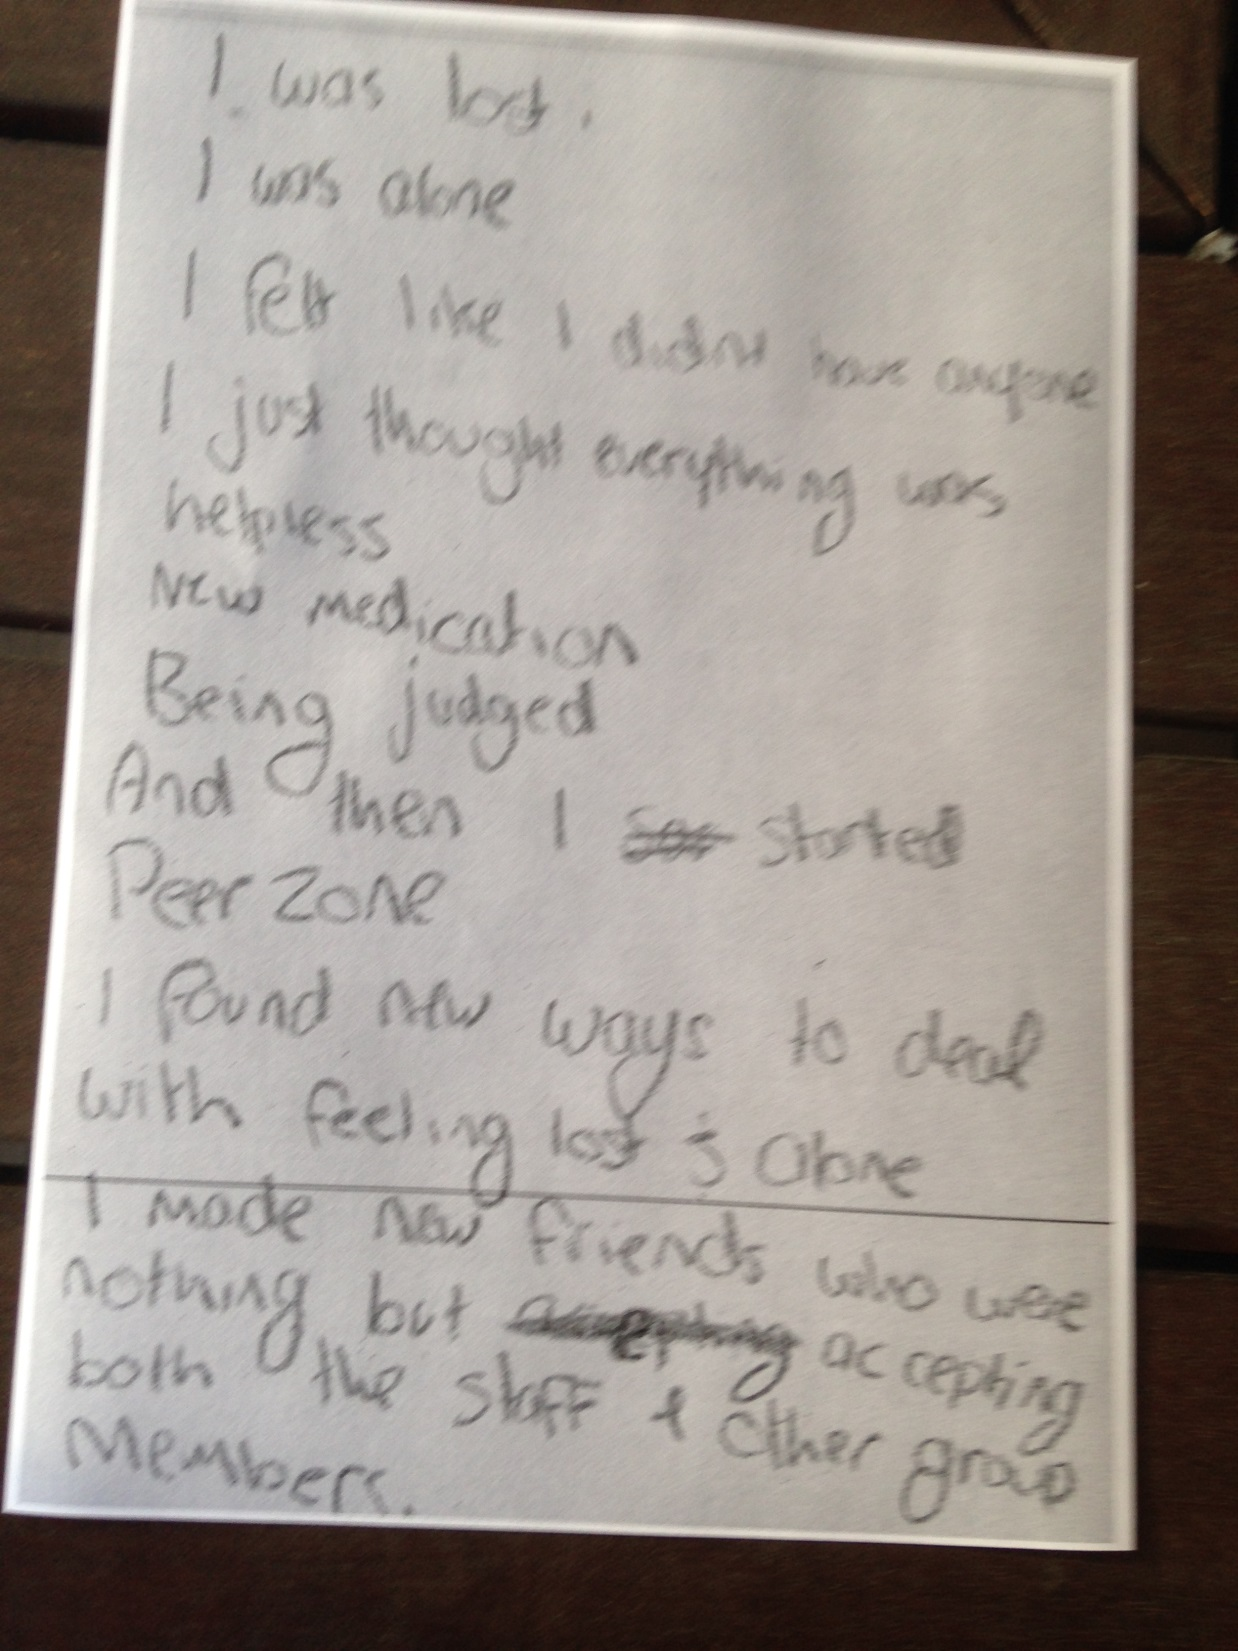 I was lost.
I was alone
I felt like I didnt have anyone
I just thought everything was
helpless
New medication
Being judged
And then I started
Peer Zone
I found new ways to deal
with feeling lost & alone
I made new friends who were
nothing but accepting
both the staff + other group
Members.